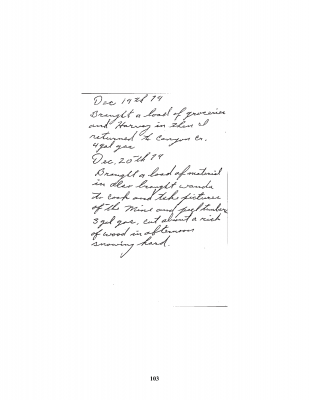 Dec 19th 79
Brought a load of groceries
and Harvey in then I
returned to Canyon Co.
4 gal gas
Dec. 20th 79
Brought a load of material
in also brought Wanda
to cook and take pictures
of the Mine and
3 gal gas, cut about a rick
of wood in afternoon
snowing hard.
103